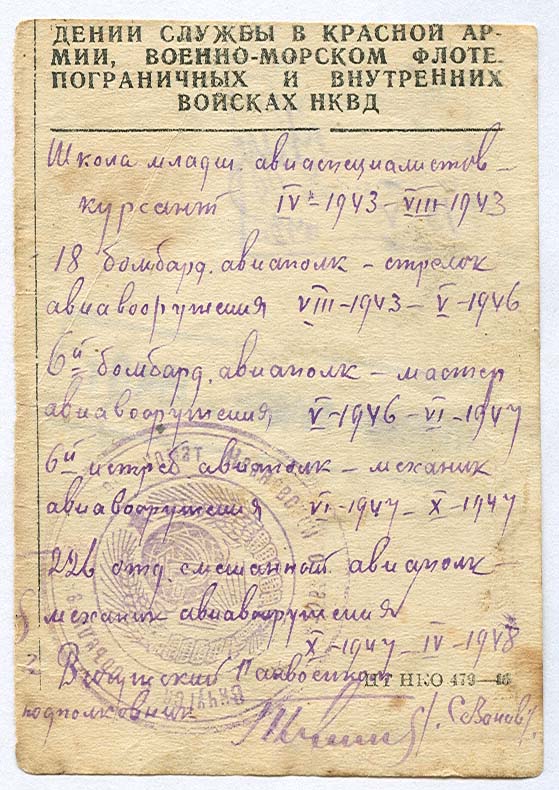 ДЕНИИ СЛУЖБЫ В КРАСНОЙ АР-
МИИ, ВОЕННО-МОРСКОМ ФЛОТЕ
ПОГРАНИЧНЫХ И ВНУТРЕННИХ
ВОЙСКАХ НКВД
Школа младш. авиаспециалистов –
курсант IV – 1943 – VIII – 1943
18 бомбард. авиаполк – стрелок
авиавооружения VIII – 1943 – V – 1946
6й бомбард. авиаполк – мастер
авиавооружения V – 1946 – VI – 1947
6й истреб. авиаполк – механик
авиавооружения VI – 1947 – X – 1947
226 отд. смешанный авиаполк –
механик авиавооружения
X – 1947 – IV – 1948
НКО 479
подполковник